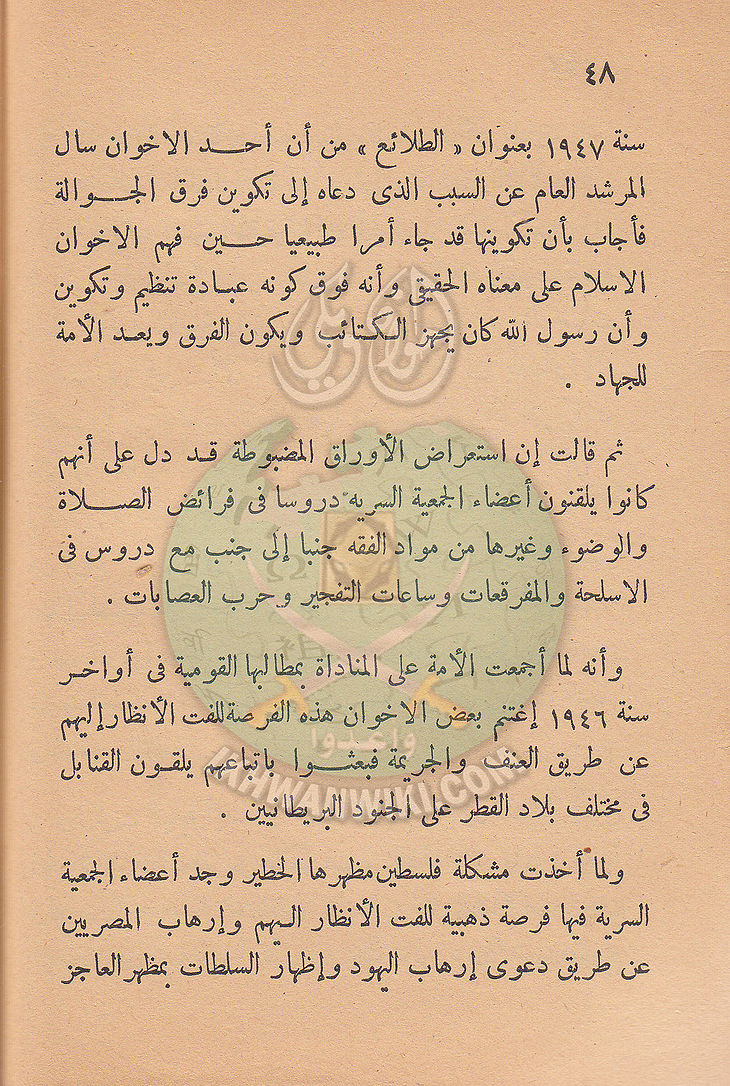 ٤٨
سنة ١٩٤٧ بعنوان « الطلائع » من أن أحد الاخوان سال
المرشد العام عن السبب الذى دعاه إلى تكوين فرق الجوالة
فأجاب بأن تكوينها قد جاء أمرا طبيعيا حين فهم الاخوان
الاسلام على معناه الحقيقى وأنه فوق كونه عبادة تنظيم وتكوين
وأن رسول الله كان يجهز الكتائب ويكون الفرق ويعد الأمة
للجهاد .
ثم قالت إن استعراض الأوراق المضبوطة قد دل على أنهم
كانوا يلقنون أعضاء الجمعية السريه دروسا فى فرائض الصلاة
والوضوء وغيرها من مواد الفقه جنبا إلى جنب مع دروس فى
الاسلحة والمفرقعات وساعات التفجير وحرب العصابات .
وأنه لما أجمعت الأمة على المناداة بمطالبها القومية فى أواخر
سنة ١٩٤٦ إغتنم بعض الاخوان هذه الفرصة للفت الأنظار إليهم
عن طريق العنف والجريمة فبعثوا باتباعهم يلقون القنابل
فى مختلف بلاد القطر على الجنود البريطانيين .
ولما أخذت مشكلة فلسطين مظهرها الخطير وجد أعضاء الجمعية
السرية فيها فرصة ذهبية للفت الأنظار اليهم وإرهاب المصريين
عن طريق دعوى إرهاب اليهود وإظهار السلطات بمظهر العاجز
وأعدوا
IKHWANWIKI.COM